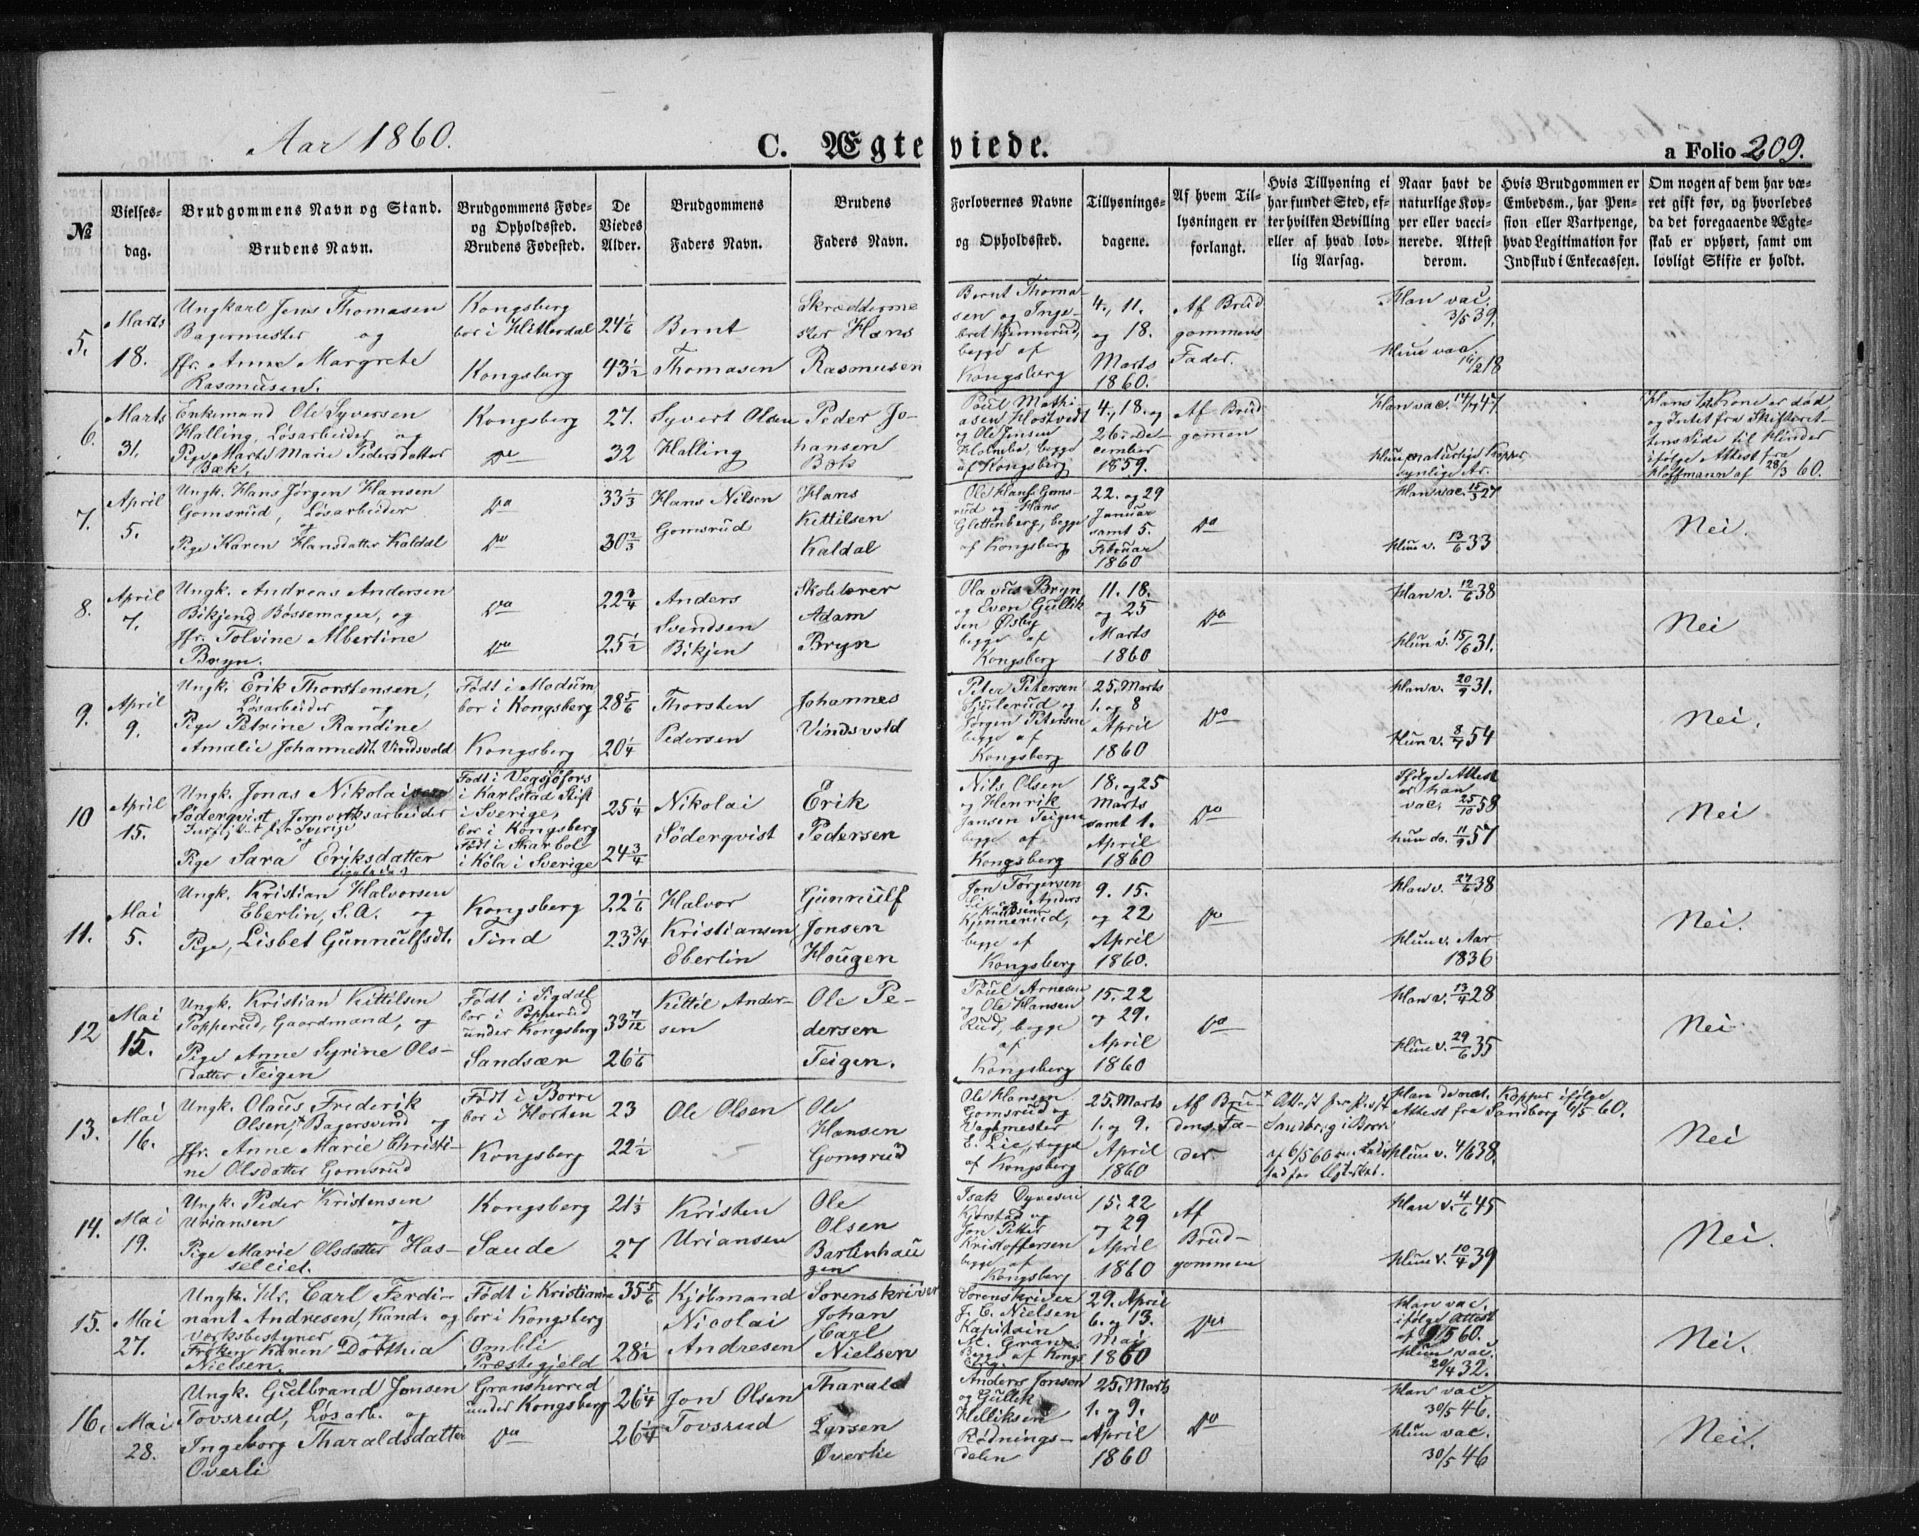 Aar 1860.
C. Ægteviede.
a Folio 209.
№
Vielses-
dag.
Brudgommens Navn og Stand.
Brudens Navn.
Brudgommens Føde-
og Opholdssted.
Brudens Fødested.
De
Viedes
Alder.
Brudgommens
Faders Navn.
Brudens
Faders Navn.
Forlovernes Navne
og Opholdssted.
Tillysnings-
dagene.
Af hvem Til-
lysningen er
forlangt.
Hvis Tillysning ei
har fundet Sted, ef-
ter hvilken Bevilling
eller af hvad lov-
lig Aarsag.
Naar havt de
naturlige Kop-
per eller vacci-
nerede. Attest
derom.
Hvis Brudgommen er
Embedsm., har Pen-
sion eller Vartpenge,
hvad Legitimation for
Indskud i Enkecassen.
Om nogen af dem har væ-
ret gift før, og hvorledes
da det foregaaende Ægte-
skab er ophørt, samt om
lovligt Skifte er holdt.
5.
Marts
18.
Ungkarl Jens Thomasen
Bagermester og
Jfr. Anne Margrete
Rasmusen.
Kongsberg
bor i Hitterdal
Kongsberg
24 1/6
43 1/2
Bernt
Thomasen
Skrædderme-
ster Hans
Rasmusen
Bernt Thoma-
sen og Inge-
bret Kjennerud,
begge af
Kongsberg
4., 11.
og 18.
Marts
1860.
Af Brud
gommens
Fader.
Han vac.
3/5 39.
Hun vac.
14/2 18
6.
Marts
31.
Enkemand Ole Syversen
Halling, Løsarbeider og
Pige Marte Marie Pedersdatter
Bæk.
Kongsberg
Do
27.
32
Syvert Olsen
Halling
Peder Jo-
hansen
Bæk
Poul Mathi-
asen Hostvedt
og Ole Jensen
Holmbo, begge
af Kongsberg
4., 18. og
26. De-
cember
1859.
Af Brud
gomen
Han vac. 14/7 47
Hun naturlige Kopper
synlige Ar.
Hans 1ste Kone er død
og Intet fra Skifteret-
tens Side til Hinder
ifølge Attest fra
Hoffmann af 28/3 60.
7.
April
5.
Ungk. Hans Jørgen Hansen
Gomsrud, Løsarbeider
og
Pige Karen Hansdatter Kaldal
Do
Do
33 1/3
30 2/3
Hans Nilsen
Gomsrud
Hans
Kittilsen
Kaldal
Ole Hans. Goms-
rud og Hans
Glettenberg, begge
af Kongsberg
22. og 29
Januar
samt 5.
Februar
1860
Do
Han vac. 15/3 27
Hun v. 13/6 33
Nei.
8.
April
7.
Ungk. Andreas Andersen
Bikjend Bøssemager, og
Jfr. Tolvine Albertine
Bryn.
Do
Do
22 3/4
25 1/2
Anders
Svendsen
Bikjen
Skolelærer
Adam
Bryn
Olavus Bryn
og Even Gullik
sen Øsby
begge af
Kongsberg
11. 18.
og 25
Marts
1860
Do
Han v. 12/6 38
Hun v. 15/6 31.
Nei
9.
April
9.
Ungk. Erik Thorstensen,
Løsarbeider og
Pige Petrine Randine
Amalie Johannesdt. Vindsvold
Født i Modum
bor i Kongsberg
Kongsberg
28 5/6
20 1/4
Thorsten
Pedersen
Johannes
Vindsvold
Peter Petersen
Gjulerud og
Jørgen Petersen
begge af
Kongsberg
25. Marts
1. og 8
April
1860
Do
Han v. 20/9 31.
Hun v. 8/7 54
Nei.
10
April
15.
Ungk. Jonas Nikolaisen
Söderqvist, Jernverksarbeider
og
Pige Sara Eriksdatter
Født i Vegsjöfors
i Karlstad Stift
i Sverige,
bor i Kongsberg
Født i Skarbol
i Köla i Sverige
25 1/4
24 3/4
Nikolai
Söderqvist
Erik
Pedersen
Nils Olsen
og Henrik
Jansen Teigen
begge af
Kongsberg
18. og 25
Marts
samt 1.
April
1860
Do
Ifølge Attest
er han
vac. 25/10 58
hun do. 11/9 57
Nei
11.
Mai
5.
Ungk. Kristian Halvorsen
Eberlin, S.A. og
Pige, Lisbet Gunnulfsdt.
Kongsberg
Tind
22 1/6
23 3/4
Halvor
Kristiansen
Eberlin
Gunnulf
Jonsen
Hougen
Jon Torgersen
Li og Anders
Knudsen
Kjennerud,
begge af
Kongsberg
9. 15.
og 22
April
1860.
Do
Han v. 27/6 38
Hun v. Aar
1836
Nei.
12
Mai
15.
Ungk. Kristian Kittilsen
Popperud, Gaardmand, og
Pige Anne Syrine Ols-
datter Teigen
Født i Sigdal
bor i Popperud
under Kongsberg
Sandsvær
33 7/12
26 1/6
Kittil Ander-
sen
Ole Pe-
dersen
Teigen.
Poul Arnesen
og Ole Hansen
Rud, begge
af
Kongsberg
15. 22
og 29.
April
1860
Do
Han v. 13/4 28
Hun v. 29/6 35
Nei
13.
Mai
16.
Ungk. Olaus Frederik
Olsen, Bagersvend og
Jfr. Anne Marie Christi-
ne Olsdatter Gomsrud
Født i Borre
bor i Horten
Kongsberg
23
22 1/2
Ole Olsen
Ole
Hansen
Gomsrud
Ole Hansen
Gomsrud og
Vagtmester
E. Lie, begge
af Kongsberg
25. Marts
1. og 9.
April
1860
Af Bru-
dens Fa-
der.
Attest fra Præst
Sandberg i Borre
af 6/5 60
Han de nat. Kopper ifølge
Attest fra Sandberg 6/5 60.
Hun v. 4/6 38.
Nei
14.
Mai
19.
Ungk. Peder Kristensen
Uriansen og
Pige Marie Olsdatter Has-
seleiet.
Kongsberg
Saude
21 1/3
27
Kristen
Uriansen
Ole
Olsen
Barlinhau
gen
Isak Dyvesen
Kjørstad og
Jon Petter
Kristoffersen
begge af
Kongsberg
15. 22
og 29
April
1860
Af
Brud-
gommen
Han v. 4/6 45
Hun v. 10/4 39
Nei.
15.
Mai
27.
Ungk. Hr. Carl Ferdi-
nant Andresen, Kand. og
Værksbestyrer og
Frøken Karen Dorthia
Nielsen.
Født i Kristiania
bor i Kongsberg
Ombli
Præstegjeld
35 5/6
28 1/2
Kjøbmand
Nicolai
Andresen
Sorenskriver
Johan
Carl
Nielsen
Sorenskriver
J. C. Nielsen
Kapitain
M. Gran
Begge af Kongs-
berg
29. April
6. og 13.
Mai
1860
Do
Han vac.
ifølge Attest
af 9/5 60.
Hun vac.
20/4 32.
Nei.
16.
Mai
28.
Ungk. Gulbrand Jonsen
Tovsrud, Løsarb. og
Ingeborg Tharaldsdatter
Overli
Gransherred
under Kongsberg
Do
26 1/4
26 1/4
Jon Olsen
Tovsrud
Tharald
Lyrsen
Øverlie
Anders Jonsen
og Gullik
Helliksen
Rødnings-
dalen
25. Marts
1. og 9.
April
1860
Do
Han vac
30/5 46.
Hun vac.
30/5 46
Nei.